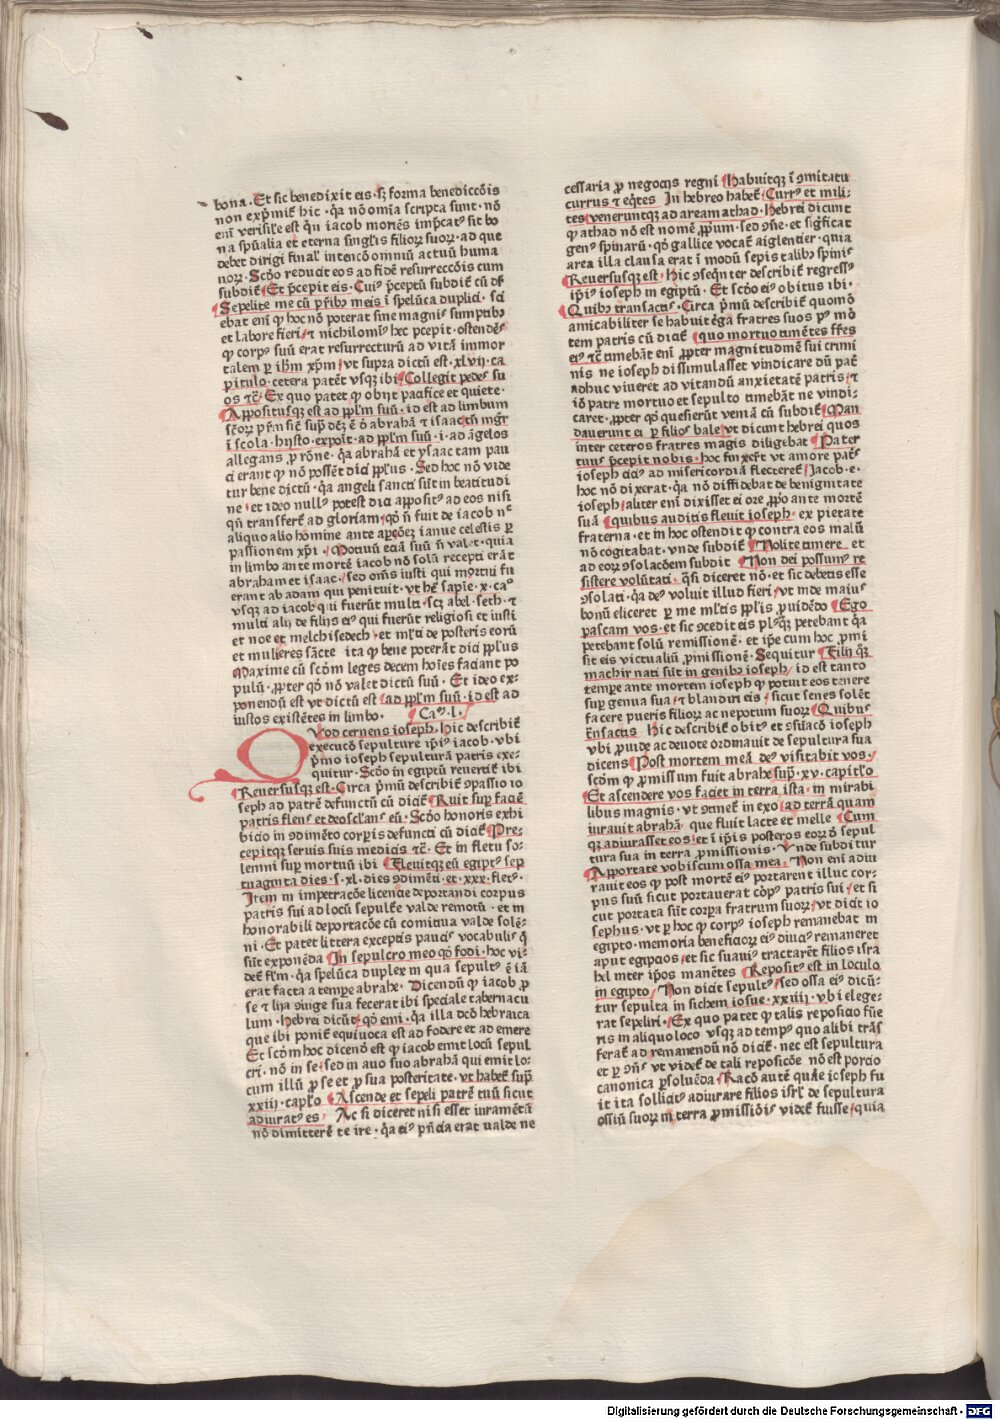 bona. Et sic benedixit eis. sꝫ forma benedicc̄ōis
non exp̄mit᷑ hic. q̄a nō om̄ia scripta sunt. nō
eni᷑ verisil᷑e est qn̄ iacob moriēs imp̄cat᷒ sit bo
na sp̄ualia et eterna singl᷑is filioꝝ suoꝝ. ad que
debet dirigi final᷑ intencō omniū actuū huma
noꝝ. Scd̄o reducit eos ad fidē resurreccōis cum
subdit᷑ Et p̄cepit eis. Cui᷒ p̄ceptū subdit᷑ cū dr̄
Sepelite me cū pr̄ibꝫ meis ī spelūca duplici. sci
ebat eni᷑ ꝙ hoc nō poterat fine magnis sumptibꝫ
et labore fieri. ⁊ nichilomi᷒ hec p̄cepit. ostendēs
ꝙ corp᷒ suū erat resurrecturū ad vitā immor
talem per ih̄m xp̄m. vt supra dictū est. xlvij. ca
pitulo. cetera patēt vsqꝫ ibi Collegit pedes su
os ⁊c̄. Ex quo patet ꝙ obijt pacifice et quiete.
Appositusqꝫ est ad pp̄lm suū. id est ad limbum
sc̄oꝝ pr̄m sic̄ sup̄ dc̄ꝫ ē ō abrahā ⁊ isaac cū mgr̄
ī scola. hysto. expōit. ad pp̄lm suū. i. ad āgelos
allegans ꝓ rōne. q̄a abrahā et ysaac tam pau
ci erant ꝙ nō possēt dici pp̄lus. Sed hoc nō vide
tur bene dictū. q̄a angeli sancti sūt in beatitudi
ne. et ideo null᷒ potest dici apposit᷒ ad eos nisi
qn̄ transfert᷑ ad gloriam. qd̄ n̄ fuit de iacob nec
aliquo alio homine ante apc̄ōeꝫ ianue celestis ꝑ
passionem xp̄i. Motiuū eciā suū n̄ valet. quia
in limbo ante mortē iacob nō solū recepti erāt
abraham et isaac. sed om̄s iusti qui mortui fu
erant ab adam qui penituit. vt hr̄ sapie. x. ca᷒
vsqꝫ ad iacob qui fuerūt multi. scꝫ abel. seth. ⁊
multi alij de filijs ei᷒ qui fuerūt religiosi et iusti
et noe et melchisedech. et ml᷑ti de posteris eorū
et mulieres sācte ita ꝙ bene poterāt dici pp̄lus
Maxime cū scd̄m leges decem hoīes faciant po
pulū. ꝓpter qd̄ nō valet dictū suū. Et ideo ex-
ponendū est vt dictū est. ad pp̄lm suū. id est ad
iustos existētes in limbo. Cam. l.
Quod cernens ioseph. Hic describit᷑
execucō sepulture ip̄i᷒ iacob. vbi
p̄mo ioseph sepulturā patris exe-
quitur. Scd̄o in egiptū reuertit᷑ ibi
Reuersusqꝫ est. Circa p̄mū describit᷑ ꝯpassio io
seph ad patrē defunctū cū dicit᷑ Ruit sup̄ faciē
patris flens et deoscl᷑ans eū. Scd̄o honoris exhi
bicio in ꝯdimēto corpis defuncti cū dicit᷑ Pre-
cepitqꝫ seruis suis medicis ⁊c̄. Et in fletu so-
lemni sup̄ mortuū ibi Fleuitqꝫ eū egipt᷒ sep
tuaginta dies. s. xl. dies ꝯdimēti. et. xxx. flet᷒.
Item in impetracōe licencie deportandi corpus
patris sui ad locū sepult᷑e valde remotū. et in
honorabili deportacōe cū comitiua valde solē-
ni. Et patet littera exceptis paucis vocabulis q̄
sūt exponēda In sepulcro meo qd̄ fodi. hoc vi-
det᷑ fl᷑m. q̄a spelūca duplex in qua sepult᷒ ē iā
erat facta a tempore abrahe. Dicendū ꝙ iacob ꝓ
se ⁊ lya ꝯiuge sua fecerat ibi speciale tabernacu
lum. Hebrei dicūt. qd̄ emi. q̄a illa dcō hebraica
que ibi ponit᷑ equiuoca est ad fodere et ad emere
Et scd̄m hoc dicend̄ est ꝙ iacob emit locū sepul
cri. nō in se. sed in auo suo abrahā qui emit lo-
cum illū ꝓ se et ꝓ sua posteritate. vt habet᷑ sup̄
xxiij capl᷑o Ascende et sepeli patrē tuū sicut
adiurat᷒ es. Ac si diceret nisi esset iuramētū
nō dimitterē te ire. q̄a ei᷒ p̄n̄cia erat valde ne
cessaria ꝓ negocijs regni Habuitqꝫ ī ꝯmitatu
currus ⁊ eq̄tes In hebreo habet᷑ Curr᷒ et mili-
tes veneruntqꝫ ad aream athad. Hebrei dicunt
ꝙ athad nō est nomē ꝓprium. sed ꝯe. et sigficat
gen᷒ spinarū. qd̄ gallice vocat᷑ aiglentier. quia
area illa clausa erat ī modū sepis talibꝫ spinis
Reuersusqꝫ est. Hic ꝯseqn̄ter describit᷑ regress᷒
ip̄i᷒ ioseph in egiptū. Et scd̄o ei᷒ obitus ibi.
Quibꝫ transactis. Circa p̄mū describit᷑ quomō
amicabiliter se habuit erga fratres suos p᷒ mō
tem patris cū dicit᷑ quo mortuo timētes fr̄es
ei᷒ ⁊c̄ timebāt eni᷑ ꝓpter magnitudinē sui crimi
nis ne ioseph dissimulasset vindicare dū pat᷑
adhuc viueret ad vitandū anxietatē patris. ⁊
iō patre mortuo et sepulto timebāt ne vindi-
caret. ꝓpter qd̄ quesierūt veniā cū subdit᷑ Man
dauerunt ei ꝑ filios bale vt dicunt hebrei quos
inter ceteros fratres magis diligebat Pater
tuus p̄cepit nobis. hoc finxer̄t vt amore patris
ioseph citi᷒ ad misericordiā flecteret᷑ Jacob. e.
hoc nō dixerat. q̄a nō diffidebat de benignitate
ioseph. aliter eni᷑ dixisset ei ore ꝓprio ante mortē
suā quibus auditis fleuit ioseph. ex pietate
fraterna. et in hoc ostendit ꝙ contra eos malū
nō cogitabat. vnde subdit᷑ Nolite timere et
ad eorꝫ ꝯsolacōem subdit Non dei possum᷒ re
sistere volūtati. q̄si diceret nō. et sic debetis esse
ꝯsolati. q̄a de᷒ voluit illud fieri. vt inde maius
bonū eliceret ꝑ me ml᷑tis pp̄lis ꝓuidēdo Ego
pascam vos. et sic ꝯcedit eis pl᷒qꝫ petebant q̄a
petebant solū remissionē. et ip̄e cum hoc ꝓmi
sit eis victualiū ꝓmissionē. Sequitur Filij qꝫ
machir nati sūt in genibꝫ ioseph. id est tanto
tempore ante mortem ioseph ꝙ potuit eos tenere
sup̄ genua sua ⁊ blandiri eis. sicut senes solēt
facere pueris filioꝝ ac nepotum suoꝝ Quibus
trāsactis Hic describit᷑ obit᷒ et ꝯsūacō ioseph
vbi ꝓuide ac deuote ordinauit de sepultura sua
dicens Post mortem meā de᷒ visitabit vos.
scd̄m ꝙ ꝓmissum fuit abrahe sup̄. xv. capitl᷑o
Et ascendere vos faciet in terra ista. in mirabi
libus magnis. vt ꝯtinet᷑ in exo. ad terrā quam
iurauit abrahā. que fluit lacte et melle Cum
qꝫ adiurasset eos. et ī ip̄is posteros eorꝫ d̄ sepul
tura sua in terra ꝓmissionis. Vnde subditur
Apportate vobiscum ossa mea. Non eni᷑ adiu
rauit eos ꝙ post mortē ei᷒ portarent illuc cor-
pus suū sicut portauerat corp᷒ patris sui. et si
cut portata sūt corpora fratrum suoꝝ. vt dicit io
sephus. vt ꝑ hoc ꝙ corp᷒ ioseph remanebat in
egipto. memoria beneficioꝝ ei᷒ diuci᷒ remaneret
aput egipcios. et sic suaui᷒ tractarēt filios isra
hel inter ip̄os manētes Reposit᷒ est in loculo
in egipto. Non dicit sepult᷒. sed ossa ei᷒ dicū-
tur sepulta in sichem iosue. xxiiij. vbi elege-
rat sepeliri. Ex quo patet ꝙ talis reposicio fūe
ris in aliquo loco vsqꝫ ad temp᷒ quo alibi trās
ferat᷑ ad remanendū nō dicit᷑. nec est sepultura
et ꝑ ꝯn̄s vt videt᷑ de tali reposicōe nō est porcio
canonica ꝑsoluēda. Racō autē quare ioseph fu
it ita sollicit᷒ adiurare filios isrl᷑ de sepultura
ossiū suoꝝ in terra ꝓmissiōis videt᷑ fuisse. quia
Digitalisierung gefördert durch die Deutsche Forschungsgemeinschaft - DFG